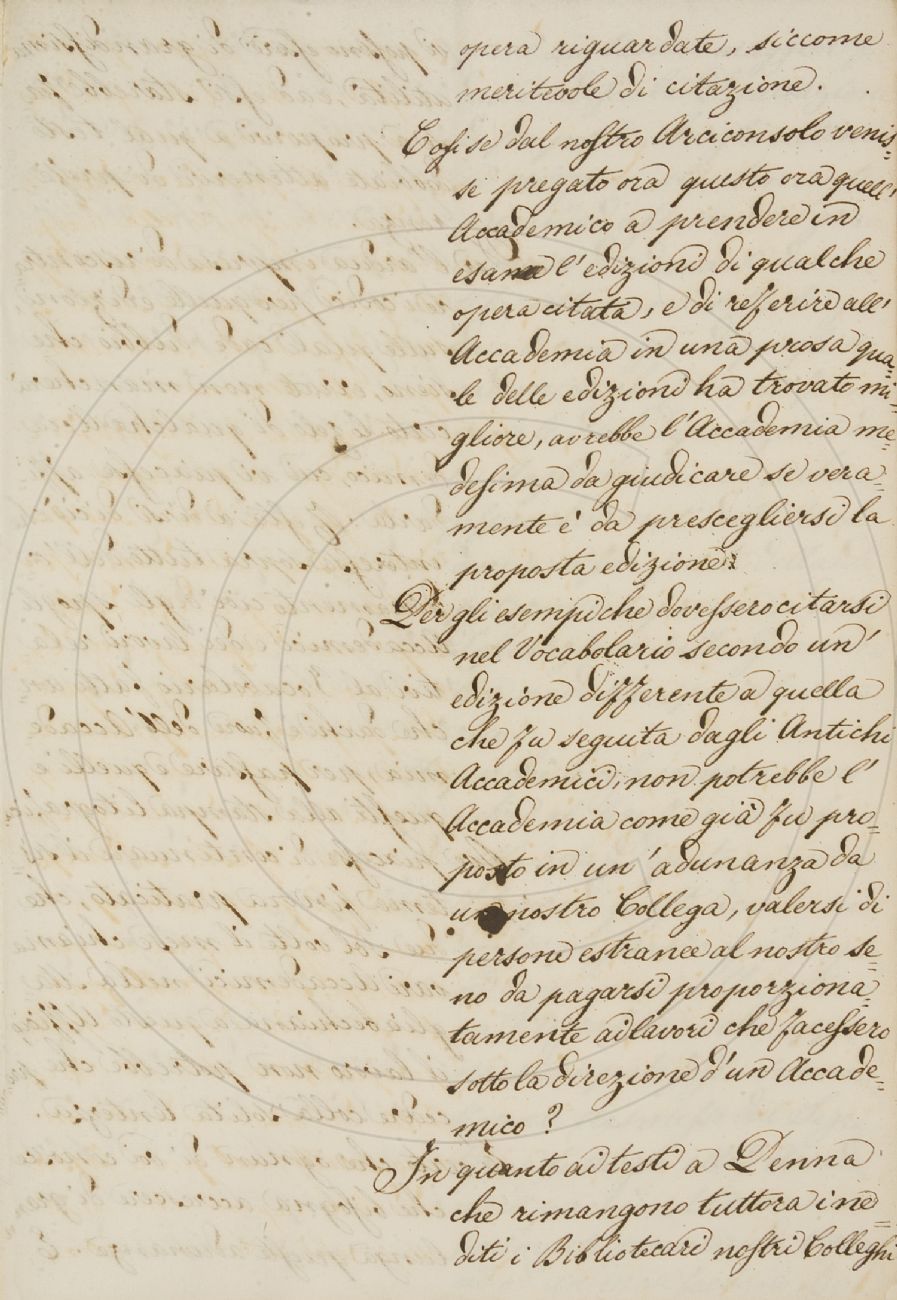 opera riguardate, siccome
meritevole di citazione.
Cosi se dal nostro Arciconsolo venis=
se pregato ora questo ora quell'
Accademico a prendere in
esame l'edizioni di qualche
opera citata, e di referire all'
Accademia in una prosa qua=
le delle edizioni ha trovato mi=
gliore, avrebbe l'Accademia me=
desima da giudicare se vera=
mente è da prescegliersi la
proposta edizione:
Per gli esempi che dovessero citarsi
nel Vocabolario secondo un'
edizione differente a quella
che fu seguita dagli Antichi
Accademici, non potrebbe l'
Accademia come già fu pro=
posto in un'adunanza da
un nostro Collega, valersi di
persone estranee al nostro se=
no da pagarsi proporziona=
tamente ai lavori che facessero
sotto la direzione d'un Accade=
mico?
In quanto ai testi a Penna
che rimangono tuttora ine=
diti i Bibliotecari nostri Colleghi